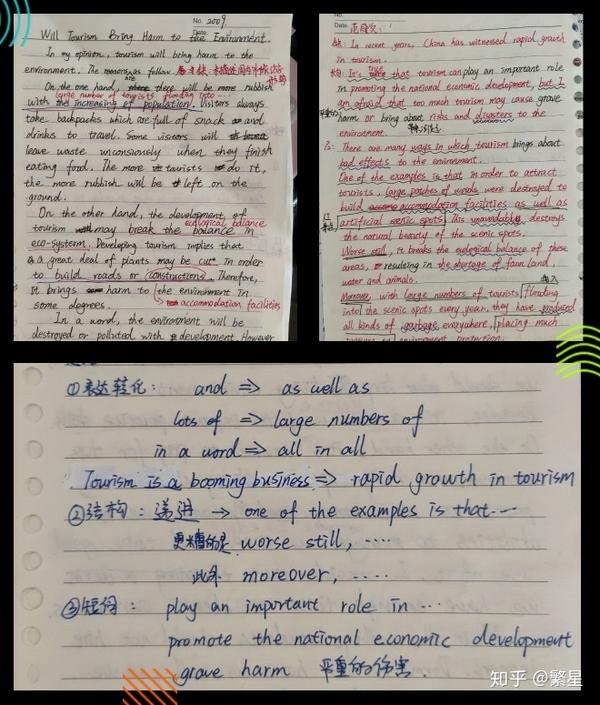 No. 2009.
Date.
Will Tourism Bring Harm to the Environment.
In my opinion, tourism will bring harm to the
environment. The reasons as follow.
On the one hand, there will be more rubbish
are
large number of tourists flooding into
with the increasing of population. Visitors always
take backpacks which are full of snack and
drinks to travel. Some visitors will
leave waste unconsiously when they finish
eating food. The more tourists do it,
the more rubbish will be left on the
ground.
On the other hand, the development of
ecological balance
tourism may break the balance in
eco-systerm. Developing tourism implies that
a great deal of plants may be cut in order
to build roads or constructions. Therefore,
it brings harm to the environment in
some degrees. accommodation facilities
In a word, the environment will be
destroyed or polluted with development. However
No.
Date
范文:
In recent years, China has witnessed rapid growth
in tourism.
true
It's that tourism can play an important role
in promoting the national economic development, but I
am afraid that too much tourism may cause grave
harm or bring about risks and disasters to the
environment.
There are many ways in which tourism brings about
bad effects to the environment.
One of the examples is that in order to attract
tourists, large patches of woods were destroyed to
build accommodation facilities as well as
artificial scenic spots. This unavoidably destroys
the natural beauty of the scenic spots.
Worse still, it breaks the ecological balance of these
areas, resulting in the shortage of farm land,
water and animals.
涌入
Moreover, with large numbers of tourists flooding
into the scenic spots every year, they have produced
all kinds of garbage everywhere, placing much
environment protection.
①表达转化: and ⇒ as well as
lots of ⇒ large numbers of
in a word ⇒ all in all
Tourism is a booming business ⇒ rapid growth in tourism
②结构: 递进 → one of the examples is that...
更糟的是 worse still, ....
此外 moreover, .....
③短句: play an important role in ...
promote the national economic development
grave harm 严重的伤害.
知乎 @繁星